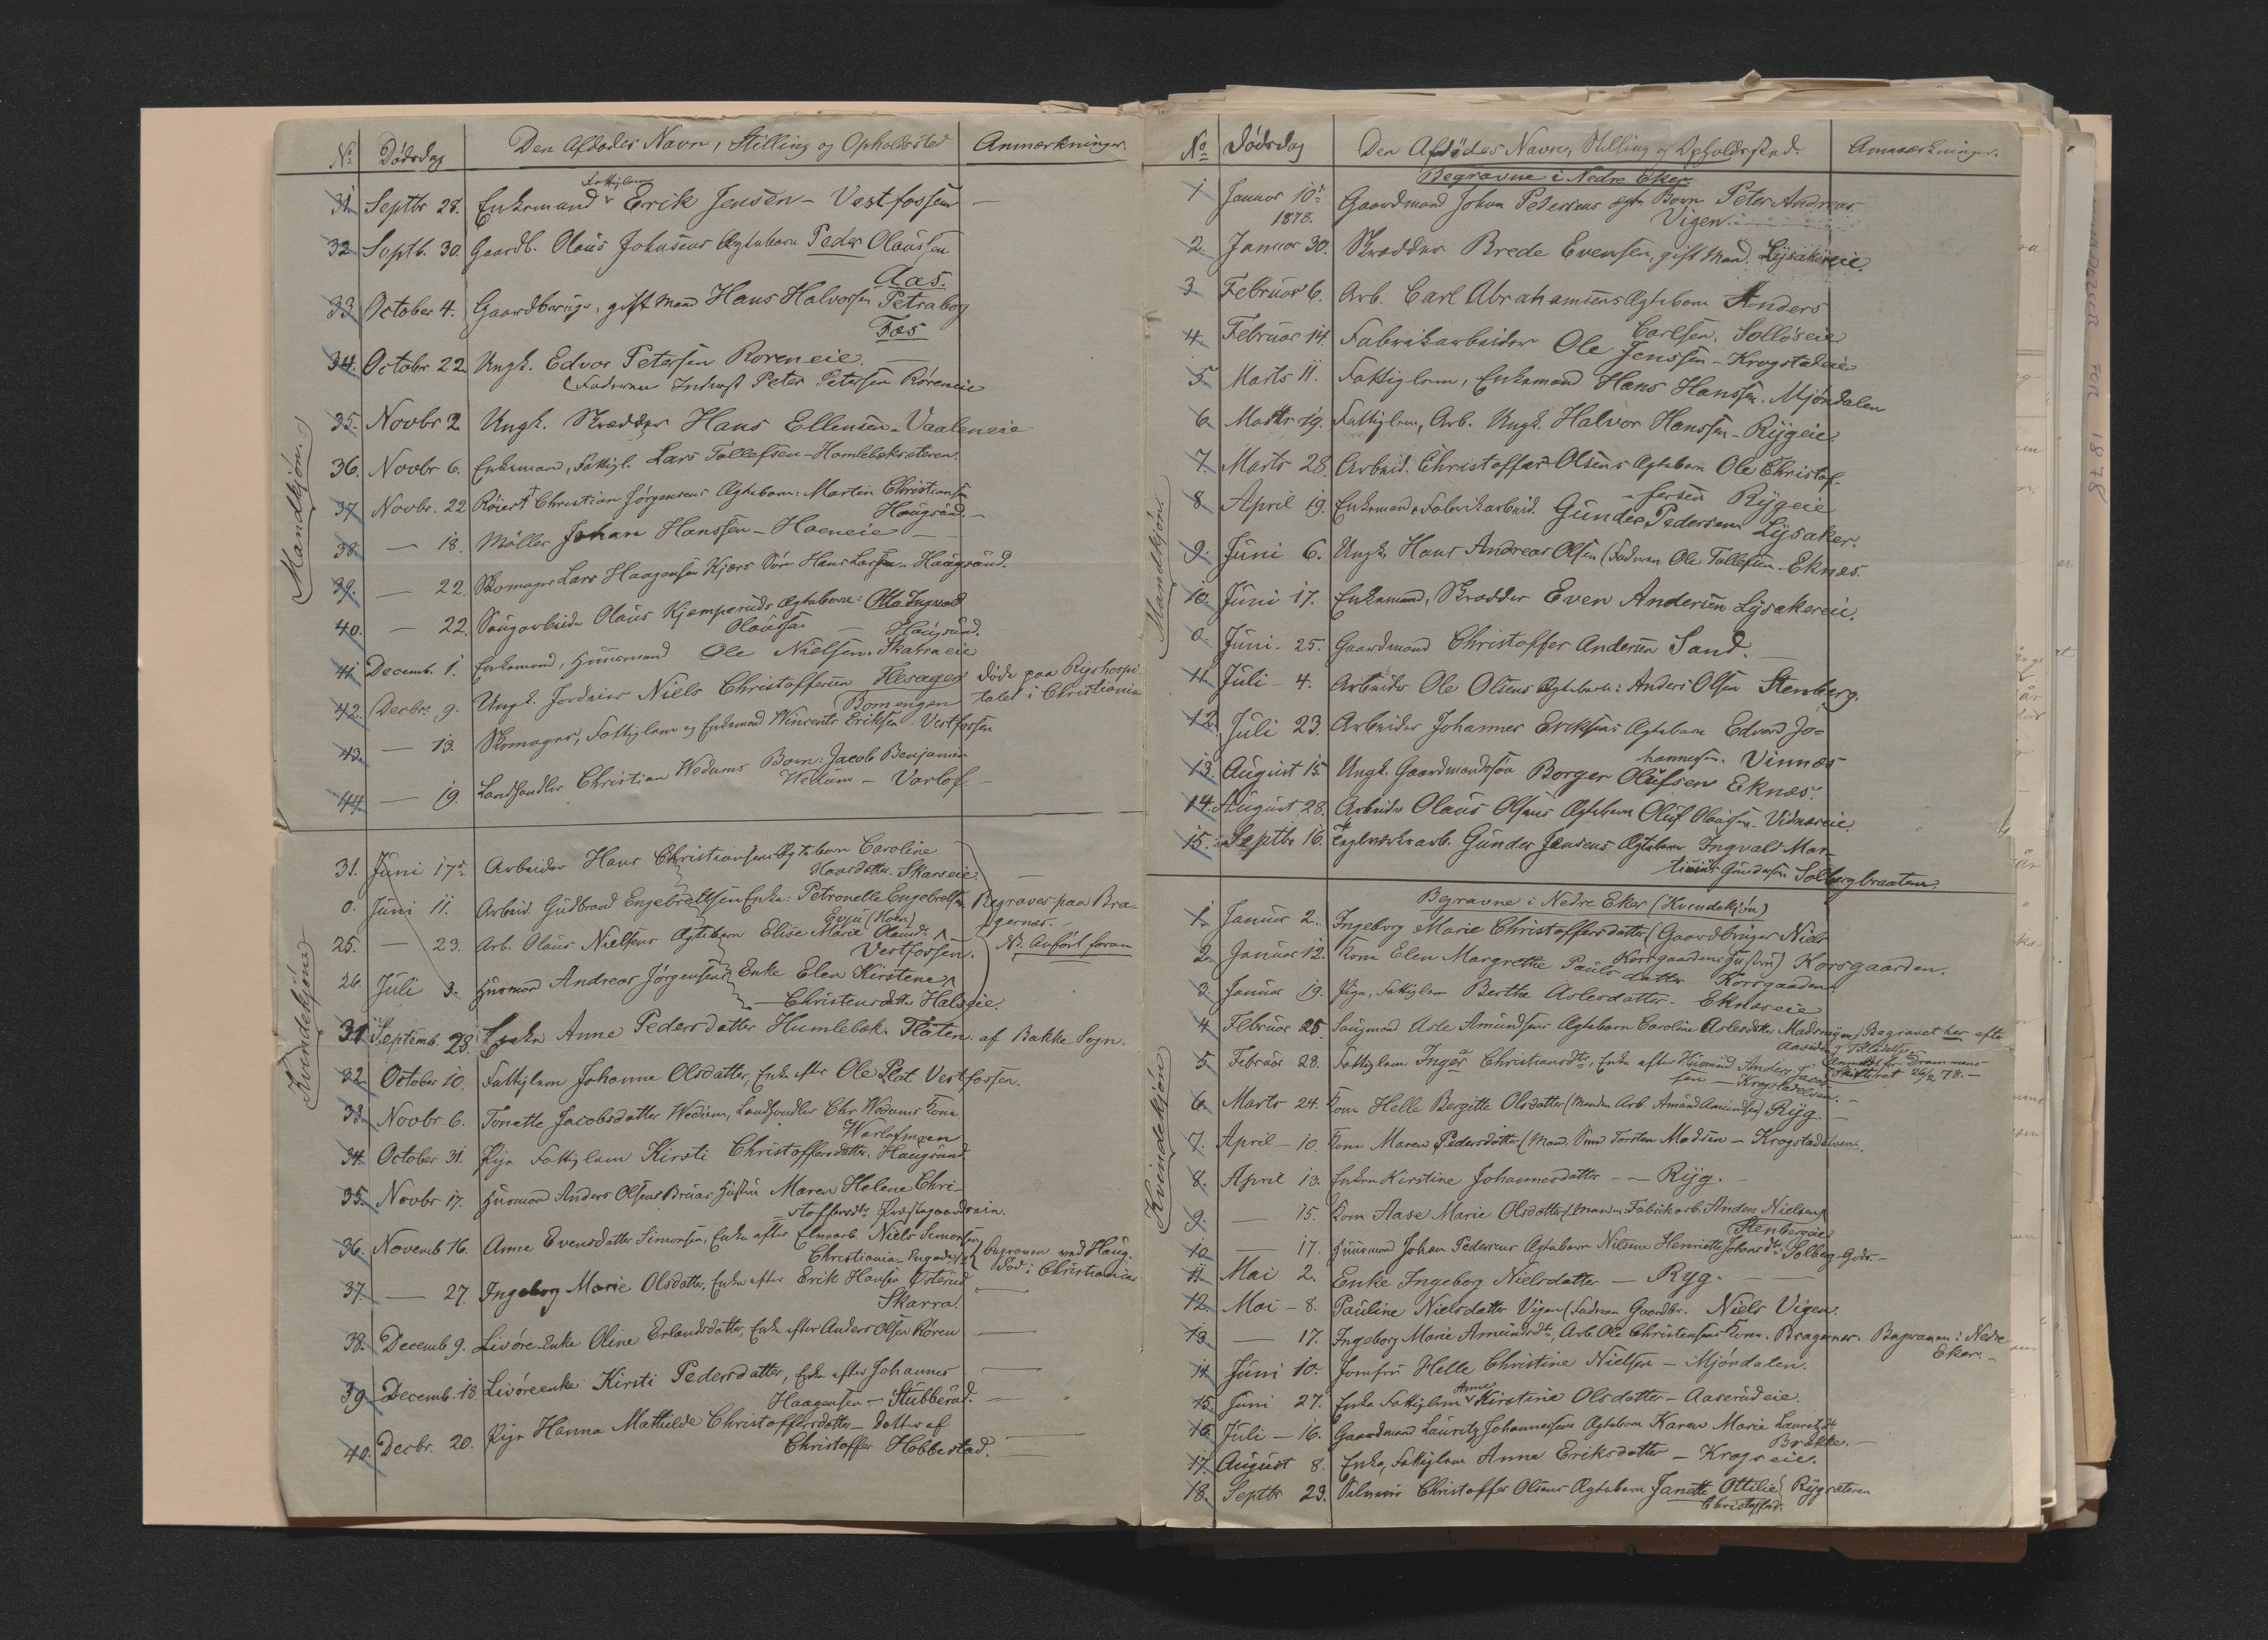 No Dødsdag Den Afdødes Navn, Stilling og Opholdssted Anmærkninger.
Mandkjøn.
Fattiglem
31. Septbr 28. Enkemand Erik Jensen - Vestfossen —
32. Septb. 30. Gaardb. Olaus Johnsens Ægtebarn Peder Olaussen
Aas.
33. October 4. Gaardbruger, gift Mand Hans Halvorsen Petrabog
Fos
34. Octobr 22 Ungk. Edvor Petersen Roreneie. —
(Faderen Inderst Peter Petersen Røreneie
35. Novbr 2 Ungk. Skrædder Hans Ellensen - Vaaleneie
36. Novbr 6. Enkemand, Fattigl. Lars Tollefsen - Homlebæksæteren.
37. Novbr. 22 Christian Jørgensens Ægtebarn: Martin Christiansen
Haugsund. —
38. — 18. Møller Johan Hanssen - Hoeneie —
39. — 22. Skomager Lars Haagensen Kjærs Søn Hans Larsen - Haugsund.
40. — 22. Saugarbeider Olaus Kjemperuds Ægtebarn: Otto Ingvald
Olaussen — Haugsund.
41. Decemb. 1. Enkemand, Huusmand Ole Nielsen. Skarraeie
42. Decbr. 9. Ungk. Jordeier Niels Christoffersen Flesager døde paa Rigshospi-
Bomengen talet i Christiania
43. — 13. Skomager, Fattiglem og Enkemand Wincents Eriksen. Vestfossen
44. — 19. Landhandler Christian Wedums Barn: Jacob Benjamin
Wedum - Varlof. —
Kvindekjøn.
31. Juni 17de Arbeider Hans Christiansens Ægtebarn Caroline
Hansdatter. Skarseie. —
0. Juni 11. Arbeid. Gudbrand Engebretsen Enke: Petronelle Engebretsen Begraves paa Bra-
(Hoen) gernes.
25. — 23. Arb. Olaus Nielsens Ægtebarn Elise Marie Olausdr
Vestfossen. NB. Anført foran
26. Juli 3. Husmand Andreas Jørgensens Enke Elen Kirstene
— Christensdatter Halseie.
31. Septemb. 28. Enke Anne Pedersdatter Humlebæk. Flaten. af Bakke Sogn.
32. October 10. Fattiglem Johanne Olsdatter, Enke efter Ole Plat. Vestfossen.
33. Novbr 6. Tonette Jacobsdatter Wedum, Landhandler Chr Wedums Kone
Warlofmoen
34. October 31. Pige Fattiglem Kirsti Christoffersdatter. Haugsund
35. Novbr 17. Husmand Anders Olsens Bruas Hustru Maren Helene Chri-
stoffersdtr Præstegaardseie.
36. Novemb 16. Anne Evensdatter Simonsen, Enke efter Niels Simonsen begraven ved Haug.
Christiania død i Christiania
37. — 27. Ingeborg Marie Olsdatter, Enke efter Erik Hansen Østerud
Skarra. —
38. Decemb 9. Livøre-Enke Oline Erlandsdatter, Enke efter Anders Olsen Røren —
39. Decemb. 18. Livøreenke Kirsti Pedersdatter, Enke efter Johannes —
Haagensen - Stubberud. —
40. Decbr. 20. Pige Hanna Mathilde Christoffersdatter - Datter af —
Christoffer Hobbestad. —
No Dødsdag Den Afdødes Navn, Stilling og Opholdssted. Anmærkninger.
Begravne i Nedre Eker
Mandkjøn.
1. Januar 10de Gaardmand Johan Pedersens ægte Barn Peter Andreas
1878. Vigen.
2. Januar 30. Skrædder Brede Evensen, gift Mand. Lysakereie.
3. Februar 6. Arb. Carl Abrahamsens Ægtebarn Anders
Carlsen. Solløseie
4. Februar 14. Fabrikarbeider Ole Jenssen - Krogstadeie
5. Marts 11. Fattiglem, Enkemand Hans Hanssen. Mjøndalen
6. Marts 19. Fattiglem, Arb. Ungk. Halvor Hanssen - Rygeie.
7. Marts 28. Arbeid. Christoffer Olsens Ægtebarn Ole Christof-
fersen Rygeie
8. April 19. Enkemand, Fabrikarbeid. Gunder Pedersen Lysaker.
9. Juni 6. Ungk. Hans Andreas Olsen (Faderen Ole Tollefsen - Eknes.
10. Juni 17. Enkemand, Skrædder Even Andersen Lysakereie.
0. Juni. 25. Gaardmand Christoffer Andersen Sand. —
11. Juli - 4. Arbeider Ole Olsens Ægtebarn: Anders Olsen Stenberg.
12. Juli 23. Arbeider Johannes Eriksens Ægtebarn Edvard Jo-
hannesen. Vinnæs
13. August 15. Ungk. Gaardmandssøn Borger Olufsen Eknæs.
14. August 28. Arbeider Olaus Olsens Ægtebarn Oluf Olaussen - Vidnæseie
15. Septbr 16. Teglværksarb. Gunder Jensens Ægtebarn Ingvald Mar-
tinius Gundersen Solbergbraaten.
Begravne i Nedre Eker (Kvindekjøn)
Kvindekjøn
1. Januar 2. Ingeborg Marie Christoffersdatter (Gaardbruger Niels
Korsgaardens Hustru) Korsgaarden.
2. Januar 12. Kone Elen Margrethe Paulsdatter Korsgaarden.
3. Januar 19. Pige, Fattiglem Berthe Aslesdatter - Eknæseie
4. Februar 25. Saugmand Asle Amundsens Ægtebarn Caroline Aslesdatter Begravet her efter
Tilladelse
fra Drammens
Skifteret 26/2 78. —
5. Februar 28. Fattiglem Inger Christiansdtr, Enke efter Husmand Anders Jacob-
sen - Krogstadelven. —
6. Marts 24. Kone Helle Bergitte Olsdatter (Manden Arb. Amund Amundsen) Ryg. —
7. April - 10. Kone Maren Pedersdatter (Mand. Torsten Madsen - Krogstadelven.
8. April 13. Enken Kirstine Johannesdatter - - Ryg. —
9. — 15. Kone Aase Marie Olsdatter (Manden Fabrikarb. Anders Nielsen)
Stenbergeie
10. — 17. Huusmand Johan Pedersens Ægtebarn Nilsine Henriette Johansdtr. Solberg-Gods. —
11. Mai 2. Enke Ingeborg Nielsdatter - Ryg. —
12. Mai - 8. Pauline Nielsdatter Vigen (Faderen Gaardbr. Niels Vigen.
13. — 17. Ingeborg Marie Amundsdtr, Arb. Ole Christensens Kone. Bragernes. Begraven i Nedre
Eker. —
14. Juni 10. Jomfru Helle Christine Nielsen - Mjøndalen.
15. Juni 27. Enke Fattiglem Anne Kirstine Olsdatter - Aaserudeie.
16. Juli - 16. Gaardmand Lauritz Johannessens Ægtebarn Karen Marie Lauritzdtr
Brække. —
17. August 8. Enke, Fattiglem Anne Eriksdatter - Krogseie.
18. Septbr 23. Christoffer Olsens Ægtebarn Janette Ottilie Rygsæteren
Christoffersd.
FOR 1878